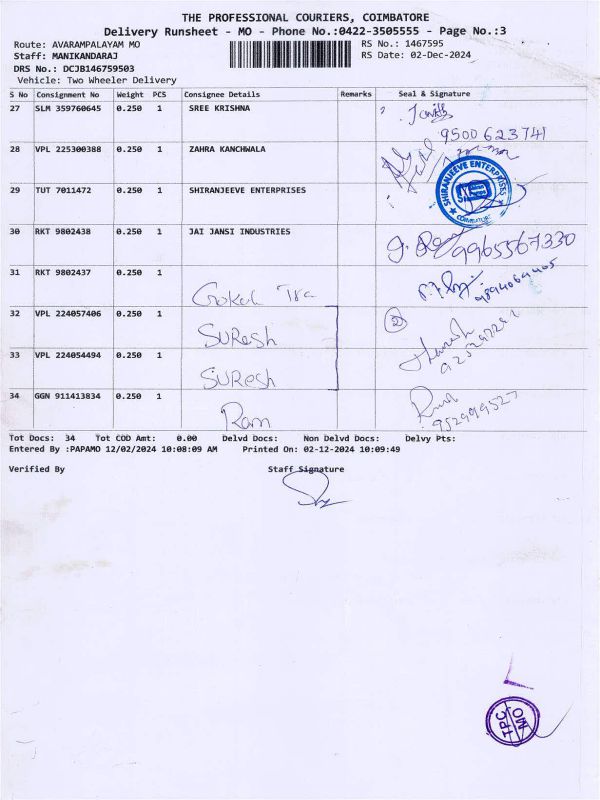 THE PROFESSIONAL COURIERS, COIMBATORE
Delivery Runsheet - MO - Phone No.:0422-3505555 - Page No.:3
Route: AVARAMPALAYAM MO RS No.: 1467595
Staff: MANIKANDARAJ RS Date: 02-Dec-2024
DRS No.: DCJB146759503
Vehicle: Two Wheeler Delivery
S No Consignment No Weight PCS Consignee Details Remarks Seal & Signature
27 SLM 359760645 0.250 1 SREE KRISHNA
9500623741
28 VPL 225300388 0.250 1 ZAHRA KANCHWALA
29 TUT 7011472 0.250 1 SHIRANJEEVE ENTERPRISES
SHIRANJEEVE ENTERPRISES
COIMBATORE
30 RKT 9802438 0.250 1 JAI JANSI INDUSTRIES
9965567330
31 RKT 9802437 0.250 1
Gokul 9894069405
32 VPL 224057406 0.250 1 2
SURESH
33 VPL 224054494 0.250 1
SURESH
34 GGN 911413834 0.250 1
Ram
Tot Docs: 34 Tot COD Amt: 0.00 Delvd Docs: Non Delvd Docs: Delvy Pts:
Entered By :PAPAMO 12/02/2024 10:08:09 AM Printed On: 02-12-2024 10:09:49
Verified By Staff Signature
TPC
MO